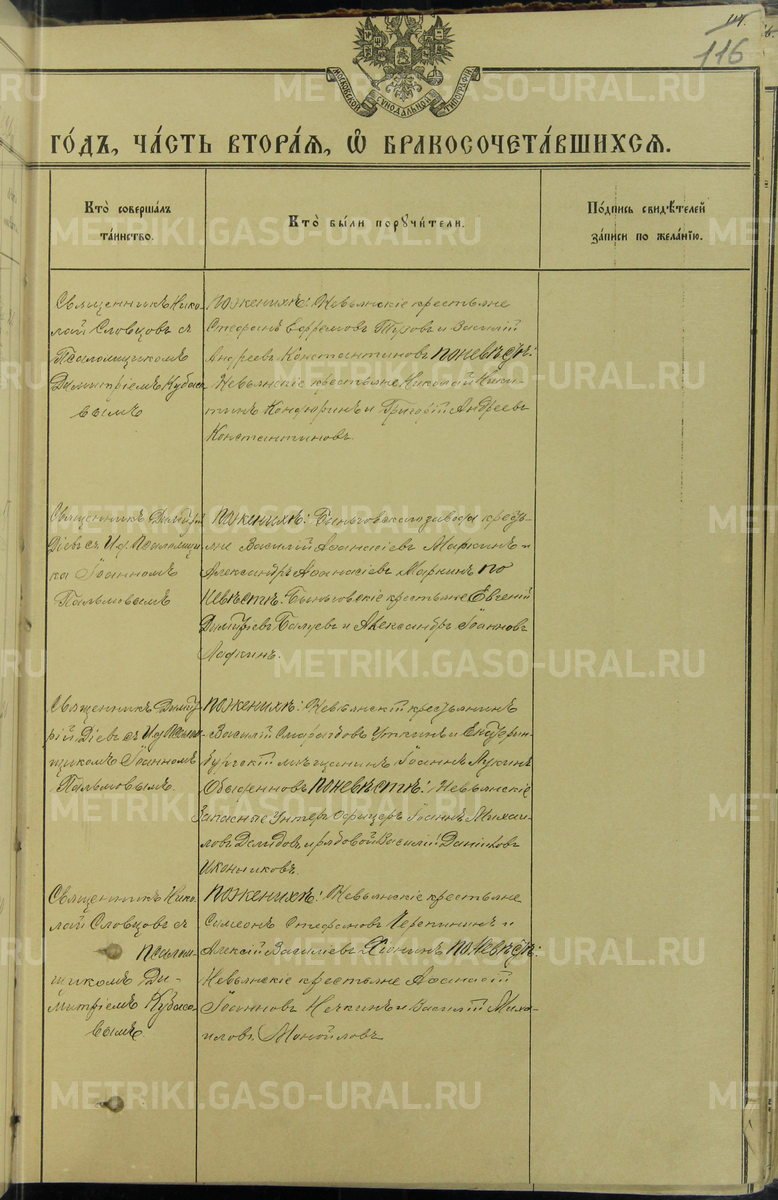 116
МОСКОВСКОЙ СѴНОДАЛЬНОЙ ТИПОГРАФІИ
ГО́ДЪ, ЧА́СТЬ ВТОРА́Я, Ѽ БРАКОСОЧЕТА́ВШИХСЯ.
Кто̀ соверша́лъ
та́инство.
Кто̀ бы́ли порꙋчи́тели.
По́дпись свидѣ́телей
за́писи по жела́нїю.
Священникъ Нико-
лай Словцовъ съ
Псаломщикомъ
Димитріемъ Кубасо-
вымъ
По женихѣ: Невьянскіе крестьяне
Стефанъ Ефремовъ и Василій
Андреевъ Константиновъ по невѣстѣ:
Невьянскіе крестьяне Николай Ники-
тинъ Кондюринъ и Григорій Андреевъ
Константиновъ.
Священникъ Димитрій
Діевъ съ И.д. Псаломщи-
ка Іоанномъ
Пальмовымъ
По женихѣ: Быньговскаго завода кресть-
яне Василій Аѳанасіевъ Маркинъ и
Александръ Аѳанасіевъ Маркинъ по
невѣстѣ: Быньговскіе крестьяне Евгеній
Димитріевъ Балуевъ и Александръ Іоанновъ
Ладкинъ.
Священникъ Димит-
рій Діевъ съ И.д. Псалом-
щикомъ Іоанномъ
Пальмовымъ.
По женихѣ: Невьянскій крестьянинъ
Василій Смарагдовъ Уткинъ и Екатерин-
бургскій мѣщанинъ Іоаннъ Лукинъ
Обыденновъ по невѣстѣ: Невьянскіе
Запасные Унтеръ Офицеръ Іоаннъ Михаи-
ловъ Демидовъ и рядовой Василій Даниловъ
Иконниковъ.
Священникъ Нико-
лай Словцовъ съ
Псалом-
щикомъ Ди-
митріемъ Кубасо-
вымъ.
По женихѣ: Невьянскіе крестьяне
Симеонъ Стефановъ Черепининъ и
Алексій Васильевъ по невѣстѣ:
Невьянскіе крестьяне Аѳанасій
Іоанновъ Нечкинъ и Василій Миха-
иловъ Манойловъ
METRIKI.GASO-URAL.RU